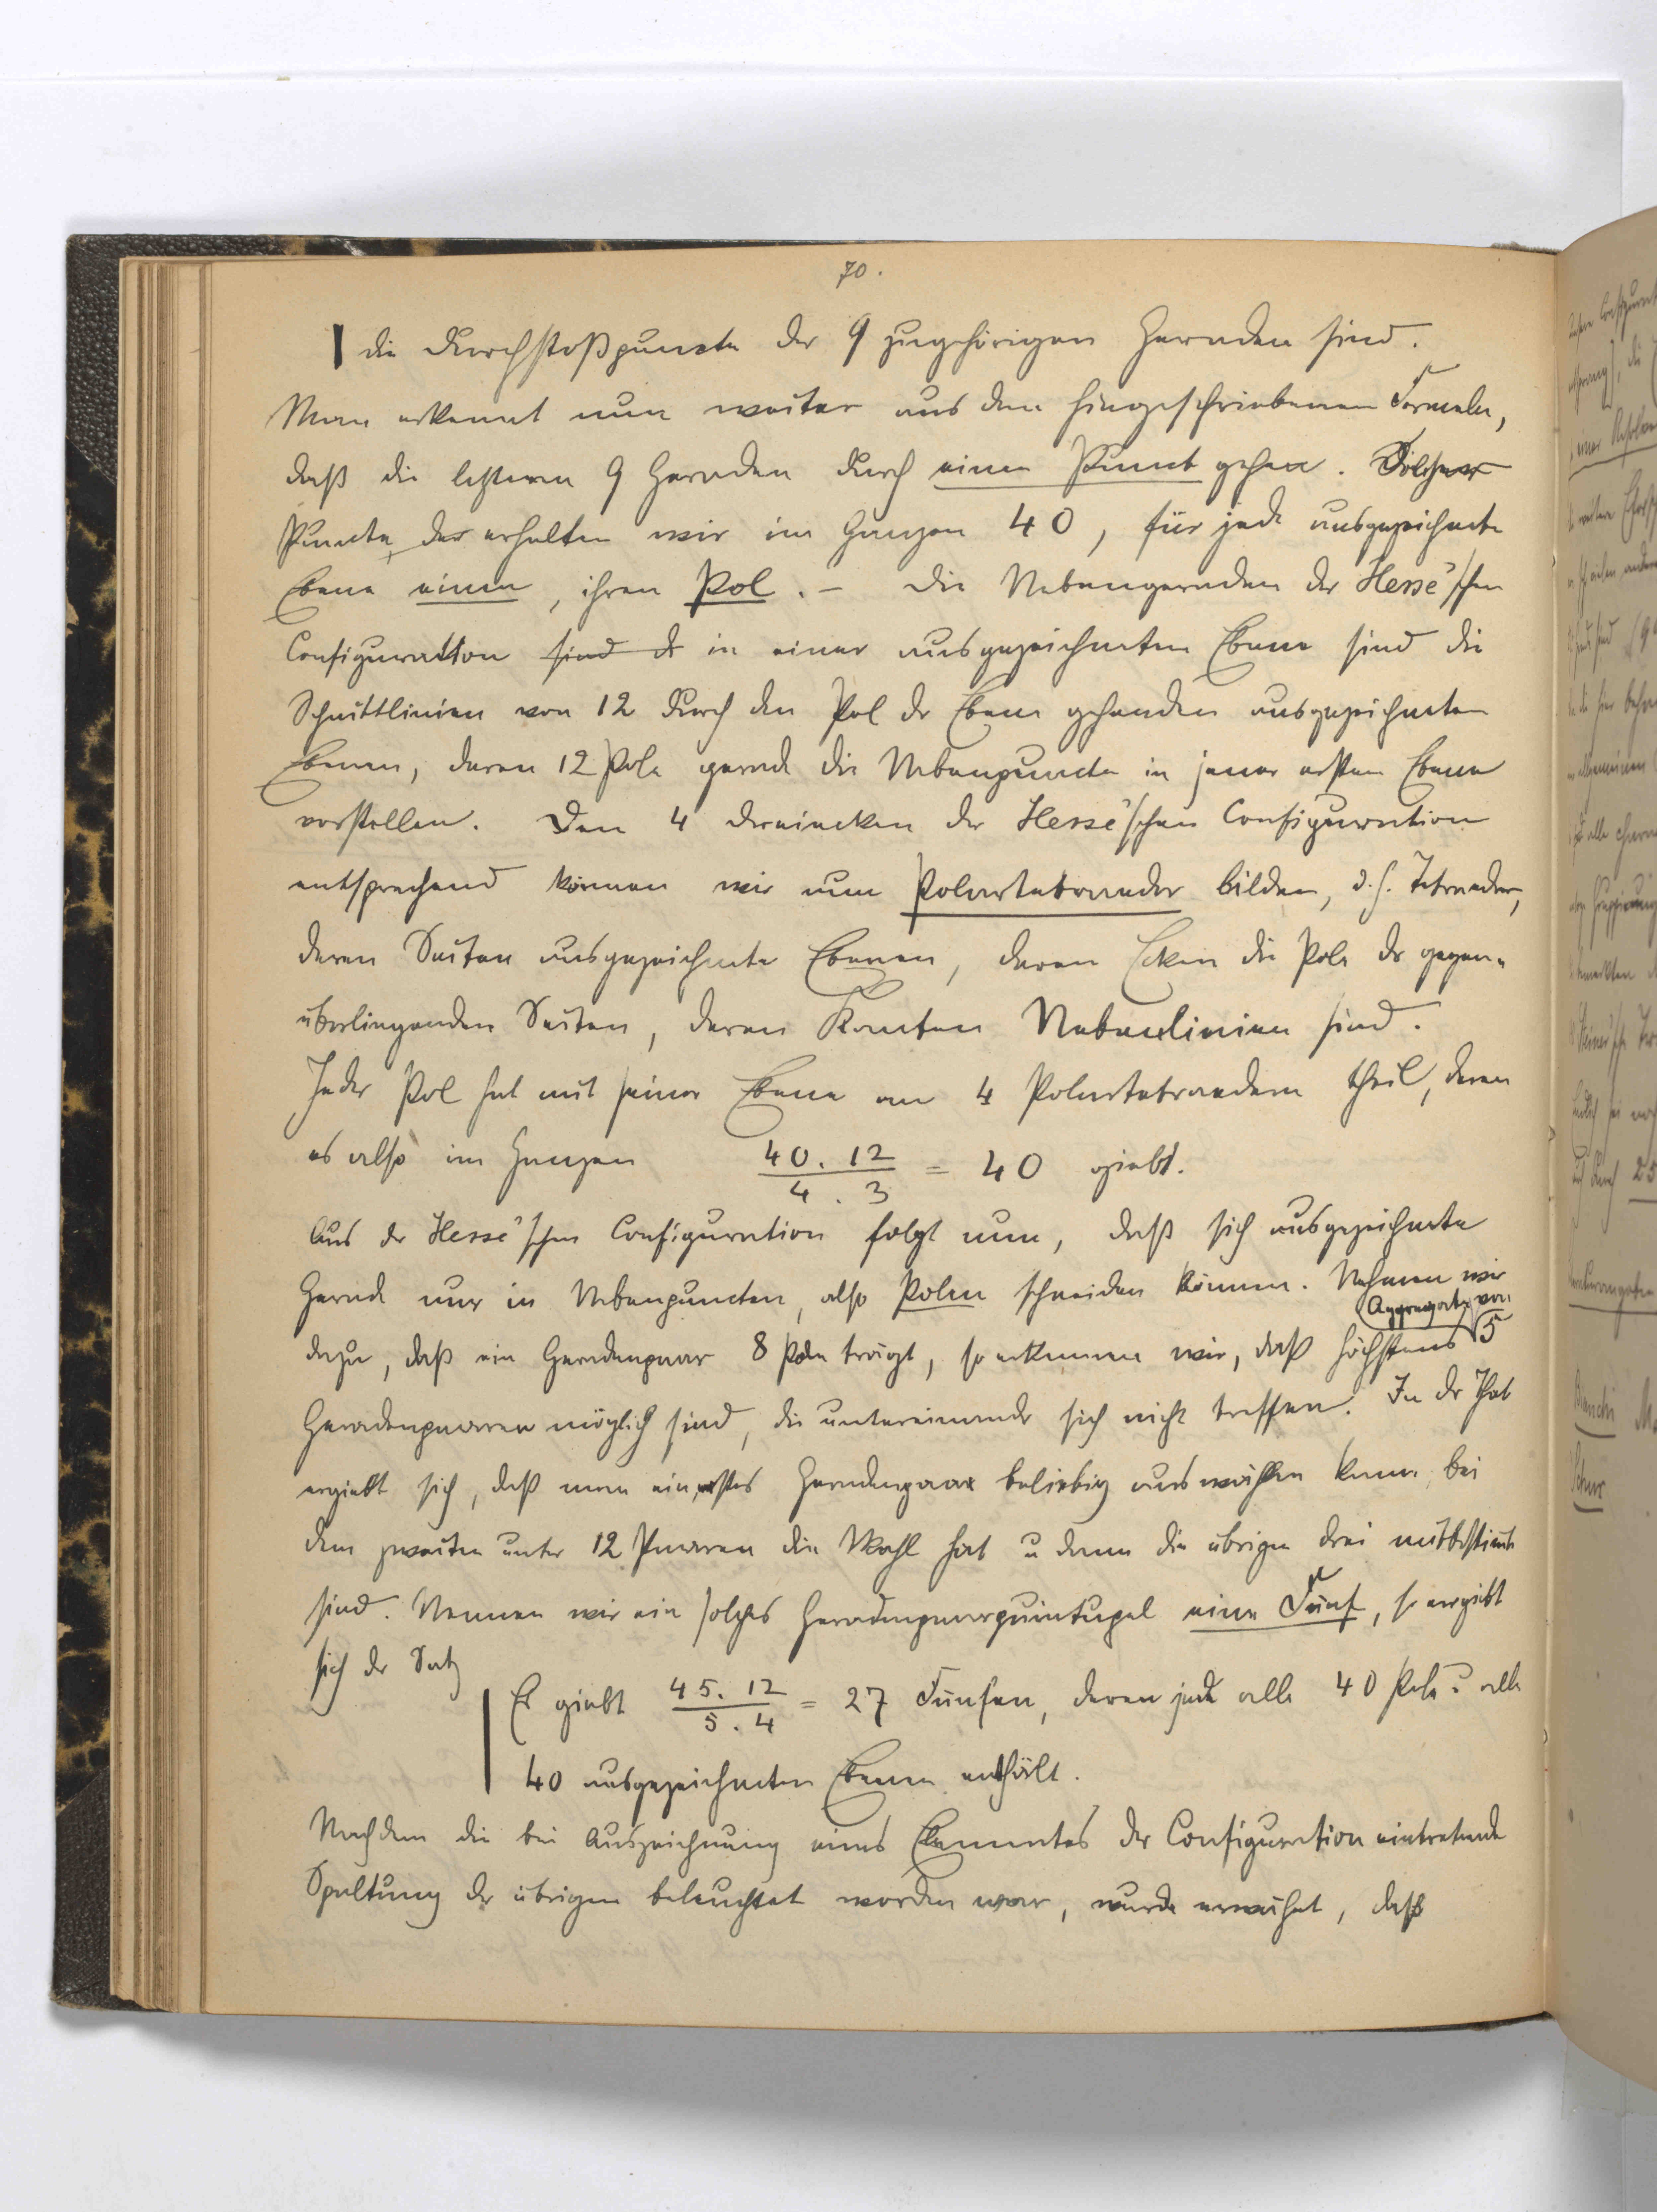 70.
die Durchstoßpuncte der 9 zugehörigen Geraden sind.
Man erkennt nun weiter aus den hingeschriebenen Formeln,
daß die letzteren 9 Geraden durch einen Punct gehen. Solcher
Puncte der erhalten wir im Ganzen 40, für jede ausgezeichnete
Ebene einen, ihren Pol. – Die Nebengeraden der Hesse'schen
Configuration sind dr in einer ausgezeichneten Ebene sind die
Schnittlinien von 12 durch den Pol dr Ebene gehenden ausgezeichneten
Ebenen, deren 12 Pole gerade die Nebenpuncte in jener ersten Ebene
vorstellen. Den 4 Dreiecken der Hesse'schen Configuration
entsprechend können wir nun Polartetraeder bilden, d.h. Tetraeder,
deren Seiten ausgezeichnete Ebenen, deren Ecken die Pole dr gegen-
überliegenden Seiten, deren Kanten Nebenlinien sind.
Jeder Pol hat mit seiner Ebene an 4 Polartetraedern theil, deren
es also im Ganzen 40.12 / 4.3 = 40 giebt.
Aus dr Hesse'schen Configuration folgt nun, daß sich ausgezeichnete
Gerade nur in Nebenpuncten, also Polen schneiden können. Nehmen wir
dazu, daß ein Geradenpaar 8 Pole trägt, so erkennen wir, daß höchstens Aggregate von 5
Geradenpaaren möglich sind, die untereinander sich nicht treffen. In dr That
ergiebt sich, daß man ein erstes Geradenpaar beliebig auswählen kann, bei
dem zweiten unter 12 Paaren die Wahl hat u dann die übrigen drei mitbestimmt
sind. Nennen wir ein solches Geradenpaarquintupel eine Fünf, so ergiebt
sich dr Satz
Es giebt 45.12 / 5.4 = 27 Fünfen, deren jede alle 40 Pole u alle
40 ausgezeichneten Ebenen enthält.
Nachdem die bei Auszeichnung eines Elementes der Configuration eintretende
Spaltung dr übrigen beleuchtet worden war, wurde erwähnt, daß